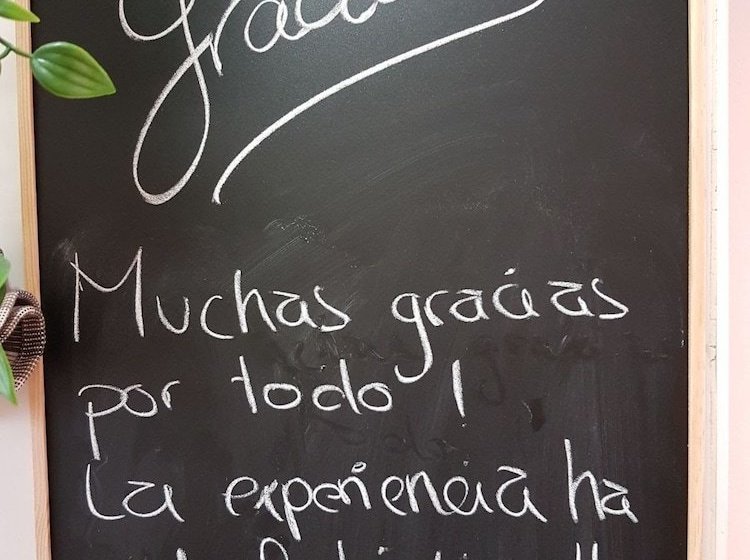 Muchas gracias
por todo!
La experiencia ha